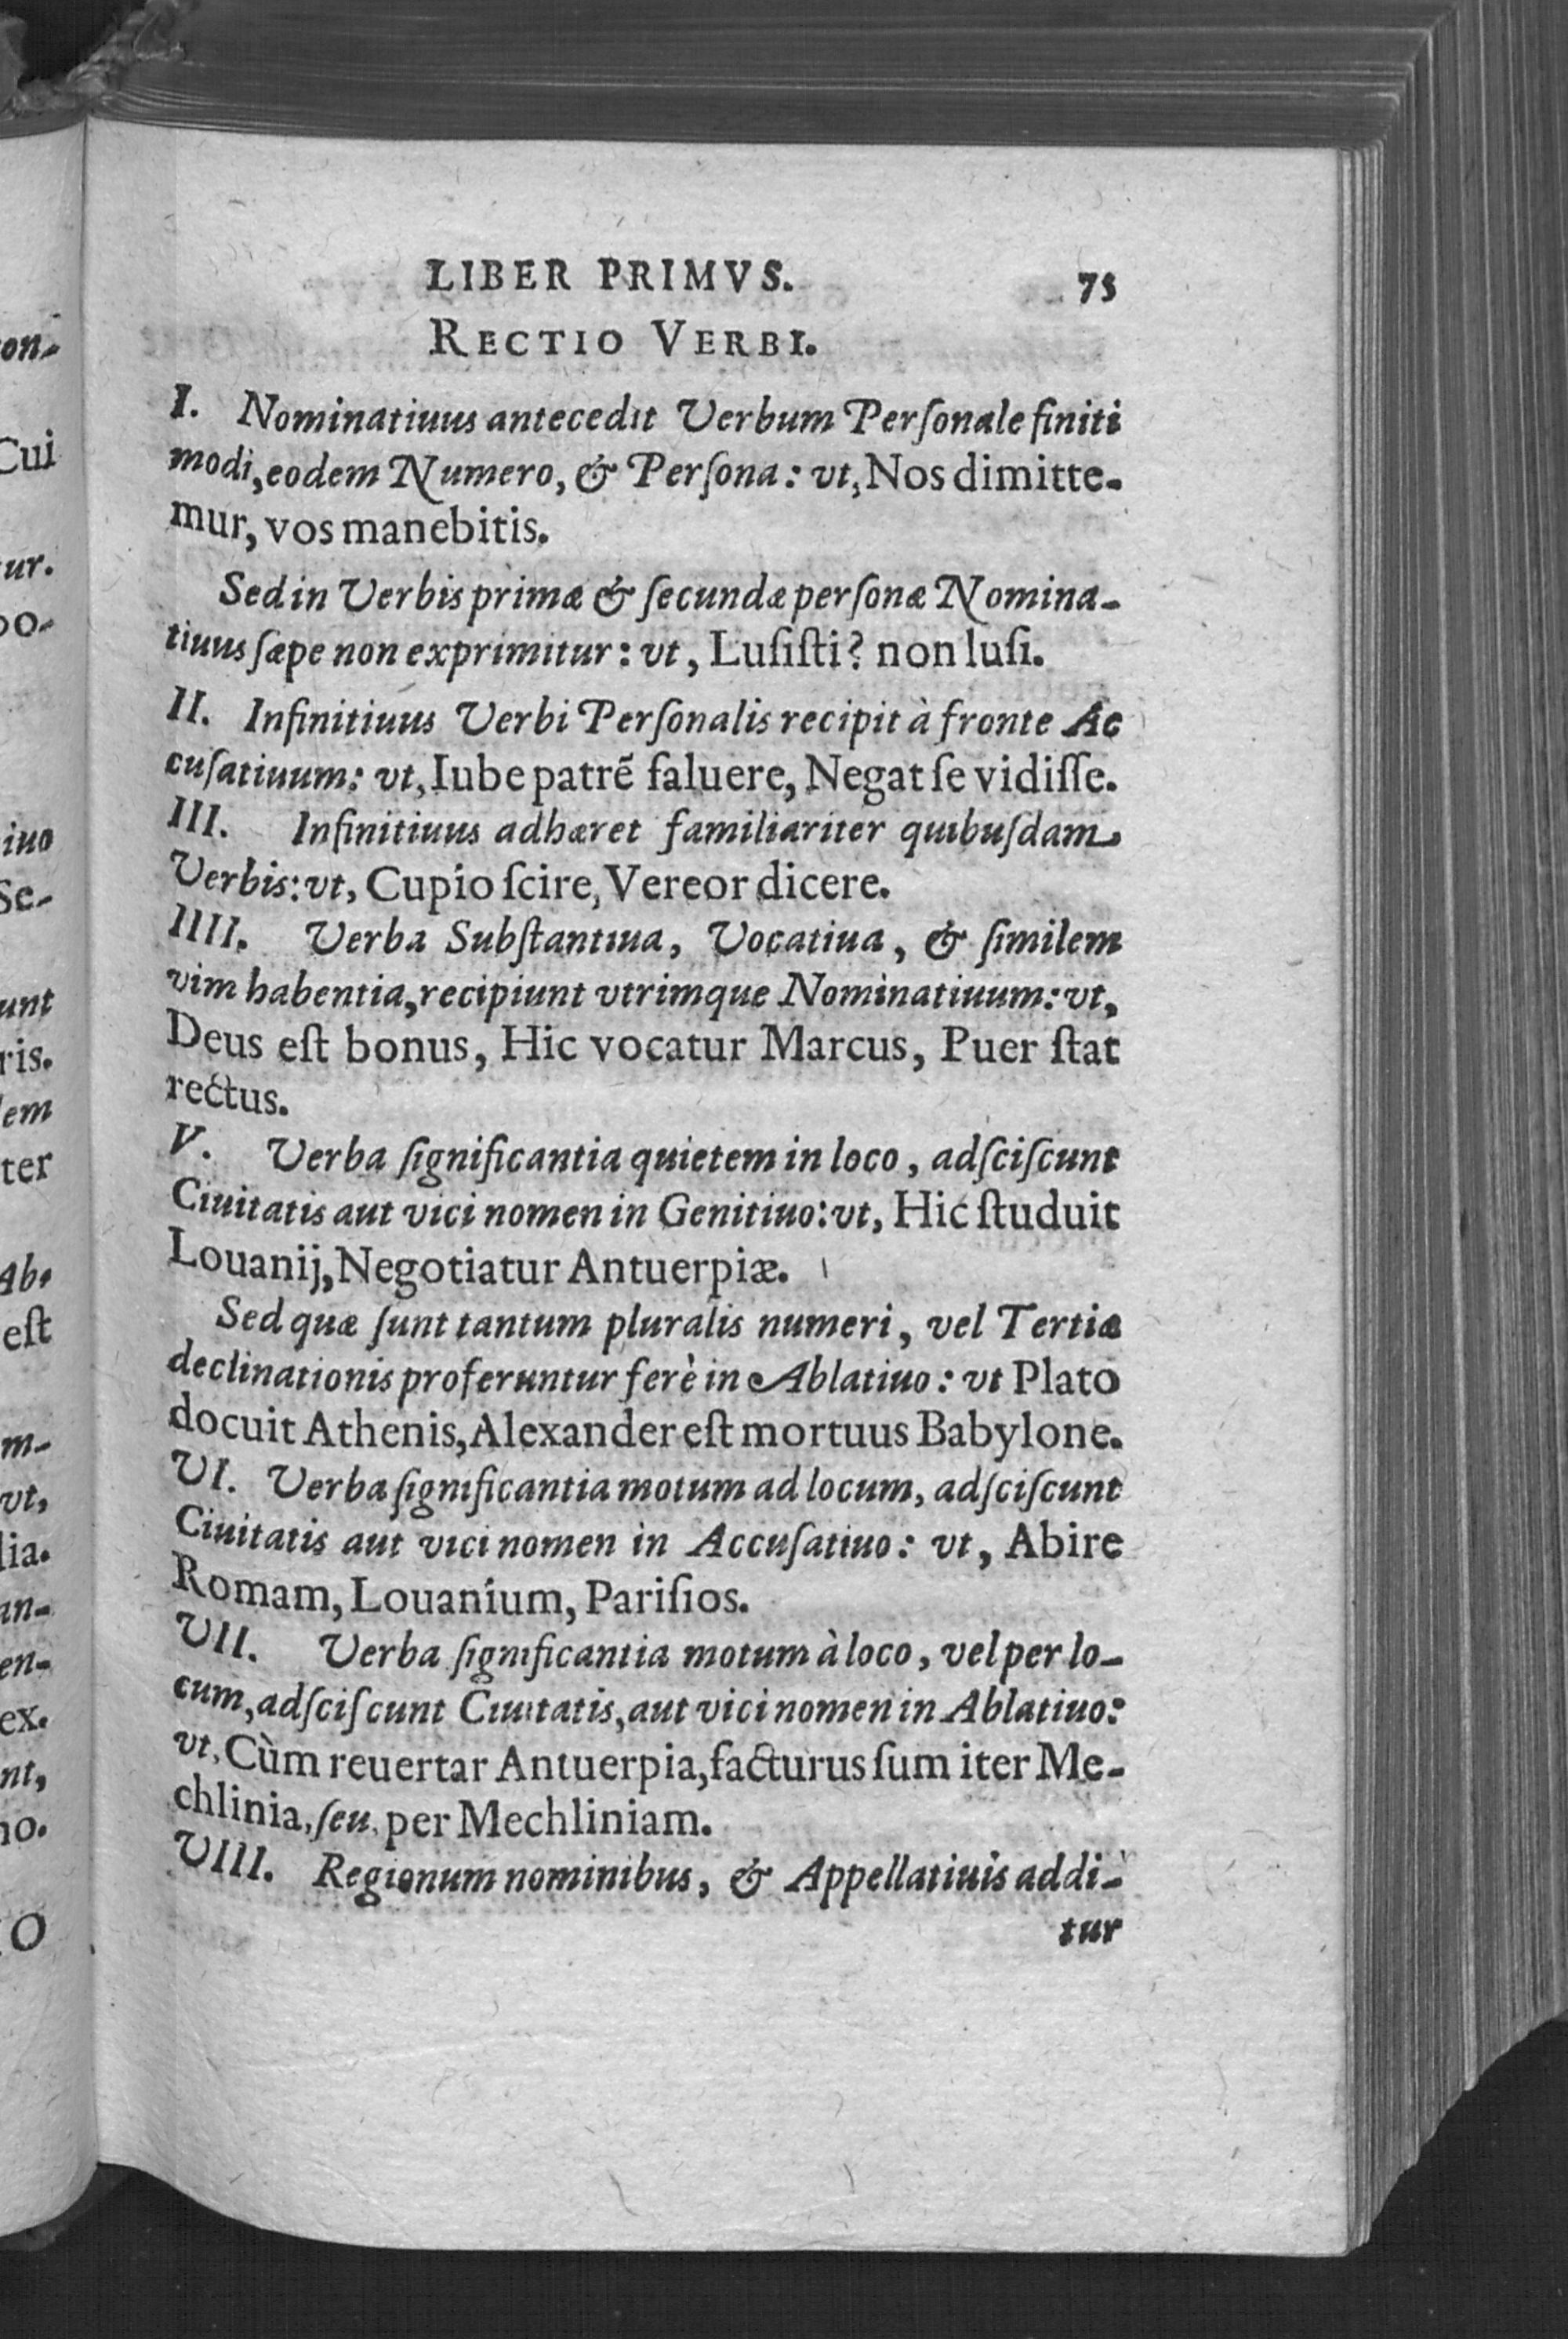 LIBER PRIMVS. 75
RECTIO VERBI.
I. Nominatiuus antecedit Verbum Perſonale finiti
modi, eodem Numero, & Perſona: vt, Nos dimitte-
mur, vos manebitis.
Sed in Verbis primæ & ſecundæ perſonæ Nomina-
tiuus ſæpe non exprimitur: vt, Luſiſti? non luſi.
II. Infinitiuus Verbi Perſonalis recipit à fronte Ac
cuſatiuum: vt, Iube patrẽ ſaluere, Negat ſe vidiſſe.
III. Infinitiuus adhæret familiariter quibuſdam
Verbis: vt, Cupio ſcire, Vereor dicere.
IIII. Verba Subſtantiua, Vocatiua, & ſimilem
vim habentia, recipiunt vtrimque Nominatiuum: vt,
Deus eſt bonus, Hic vocatur Marcus, Puer ſtat
rectus.
V. Verba ſignificantia quietem in loco, adſciſcunt
Ciuitatis aut vici nomen in Genitiuo: vt, Hic ſtuduit
Louanij, Negotiatur Antuerpiæ.
Sed quæ ſunt tantum pluralis numeri, vel Tertiæ
declinationis proferuntur ferè in Ablatiuo: vt Plato
docuit Athenis, Alexander eſt mortuus Babylone.
VI. Verba ſignificantia motum ad locum, adſciſcunt
Ciuitatis aut vici nomen in Accuſatiuo: vt, Abire
Romam, Louanium, Pariſios.
VII. Verba ſignificantia motum à loco, vel per lo-
cum, adſciſcunt Ciuitatis, aut vici nomen in Ablatiuo:
vt, Cùm reuertar Antuerpia, facturus ſum iter Me-
chlinia, ſeu, per Mechliniam.
VIII. Regionum nominibus, & Appellatiuis addi-
tur